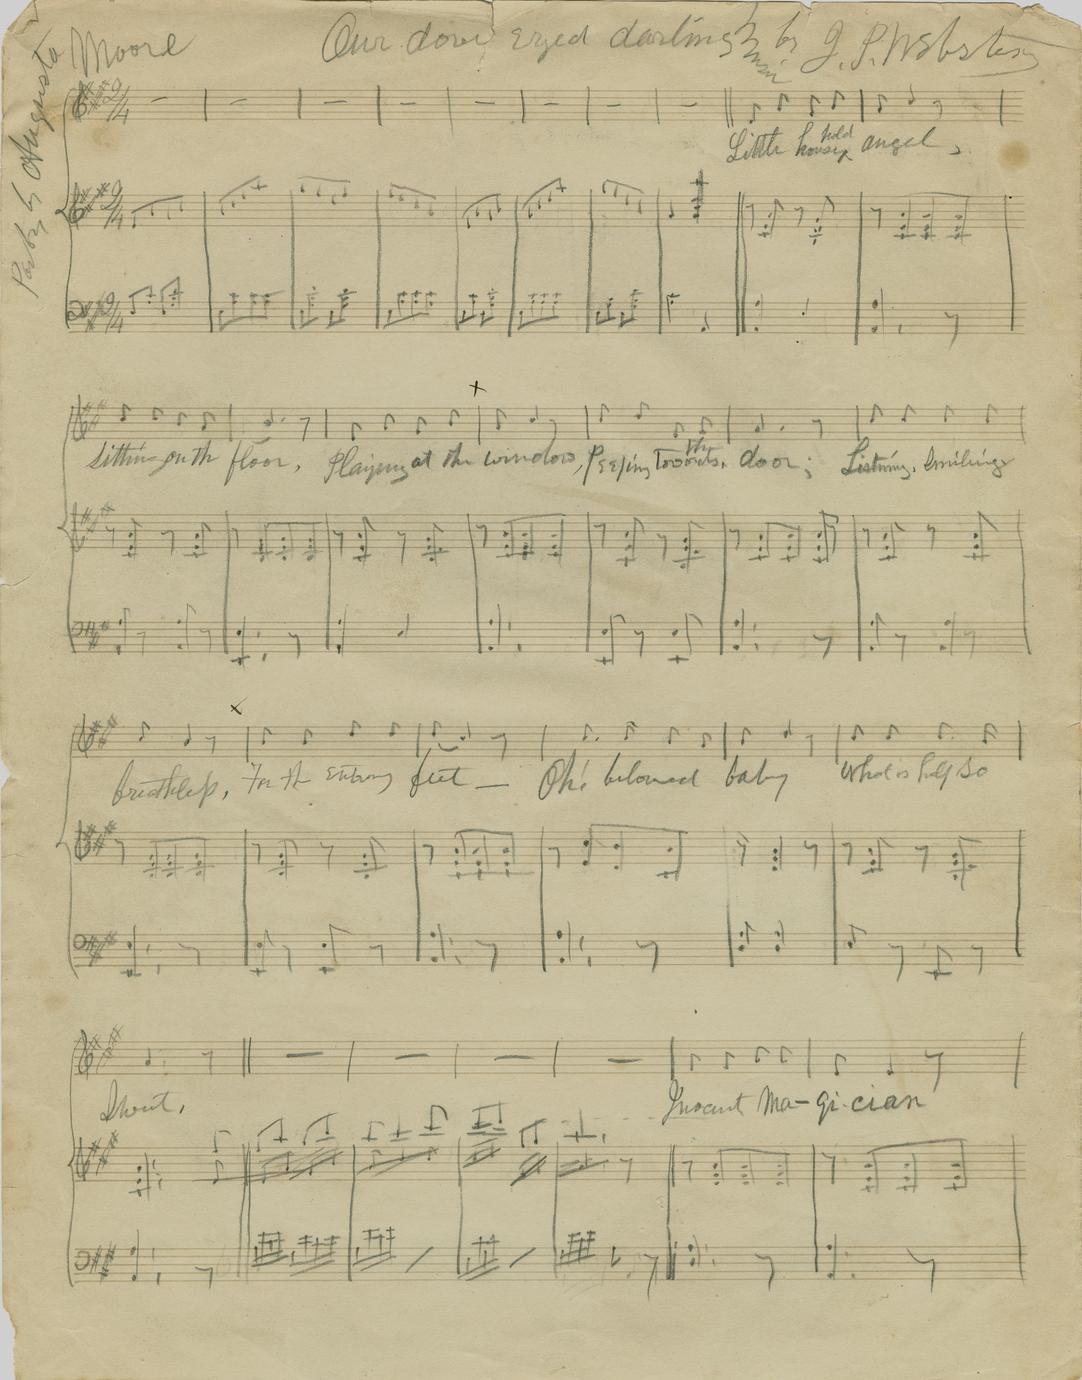 Poetry by Augusta Moore
Our dove eyed darling Music by J. P. Webster
Little household angel,
Sitting on th floor, Playing at the window, Peeping towards the door; Listning, Smiling
breathless, For th entring feet — Oh! beloved baby What is half so
Sweet,
Inocent Ma-gi-cian